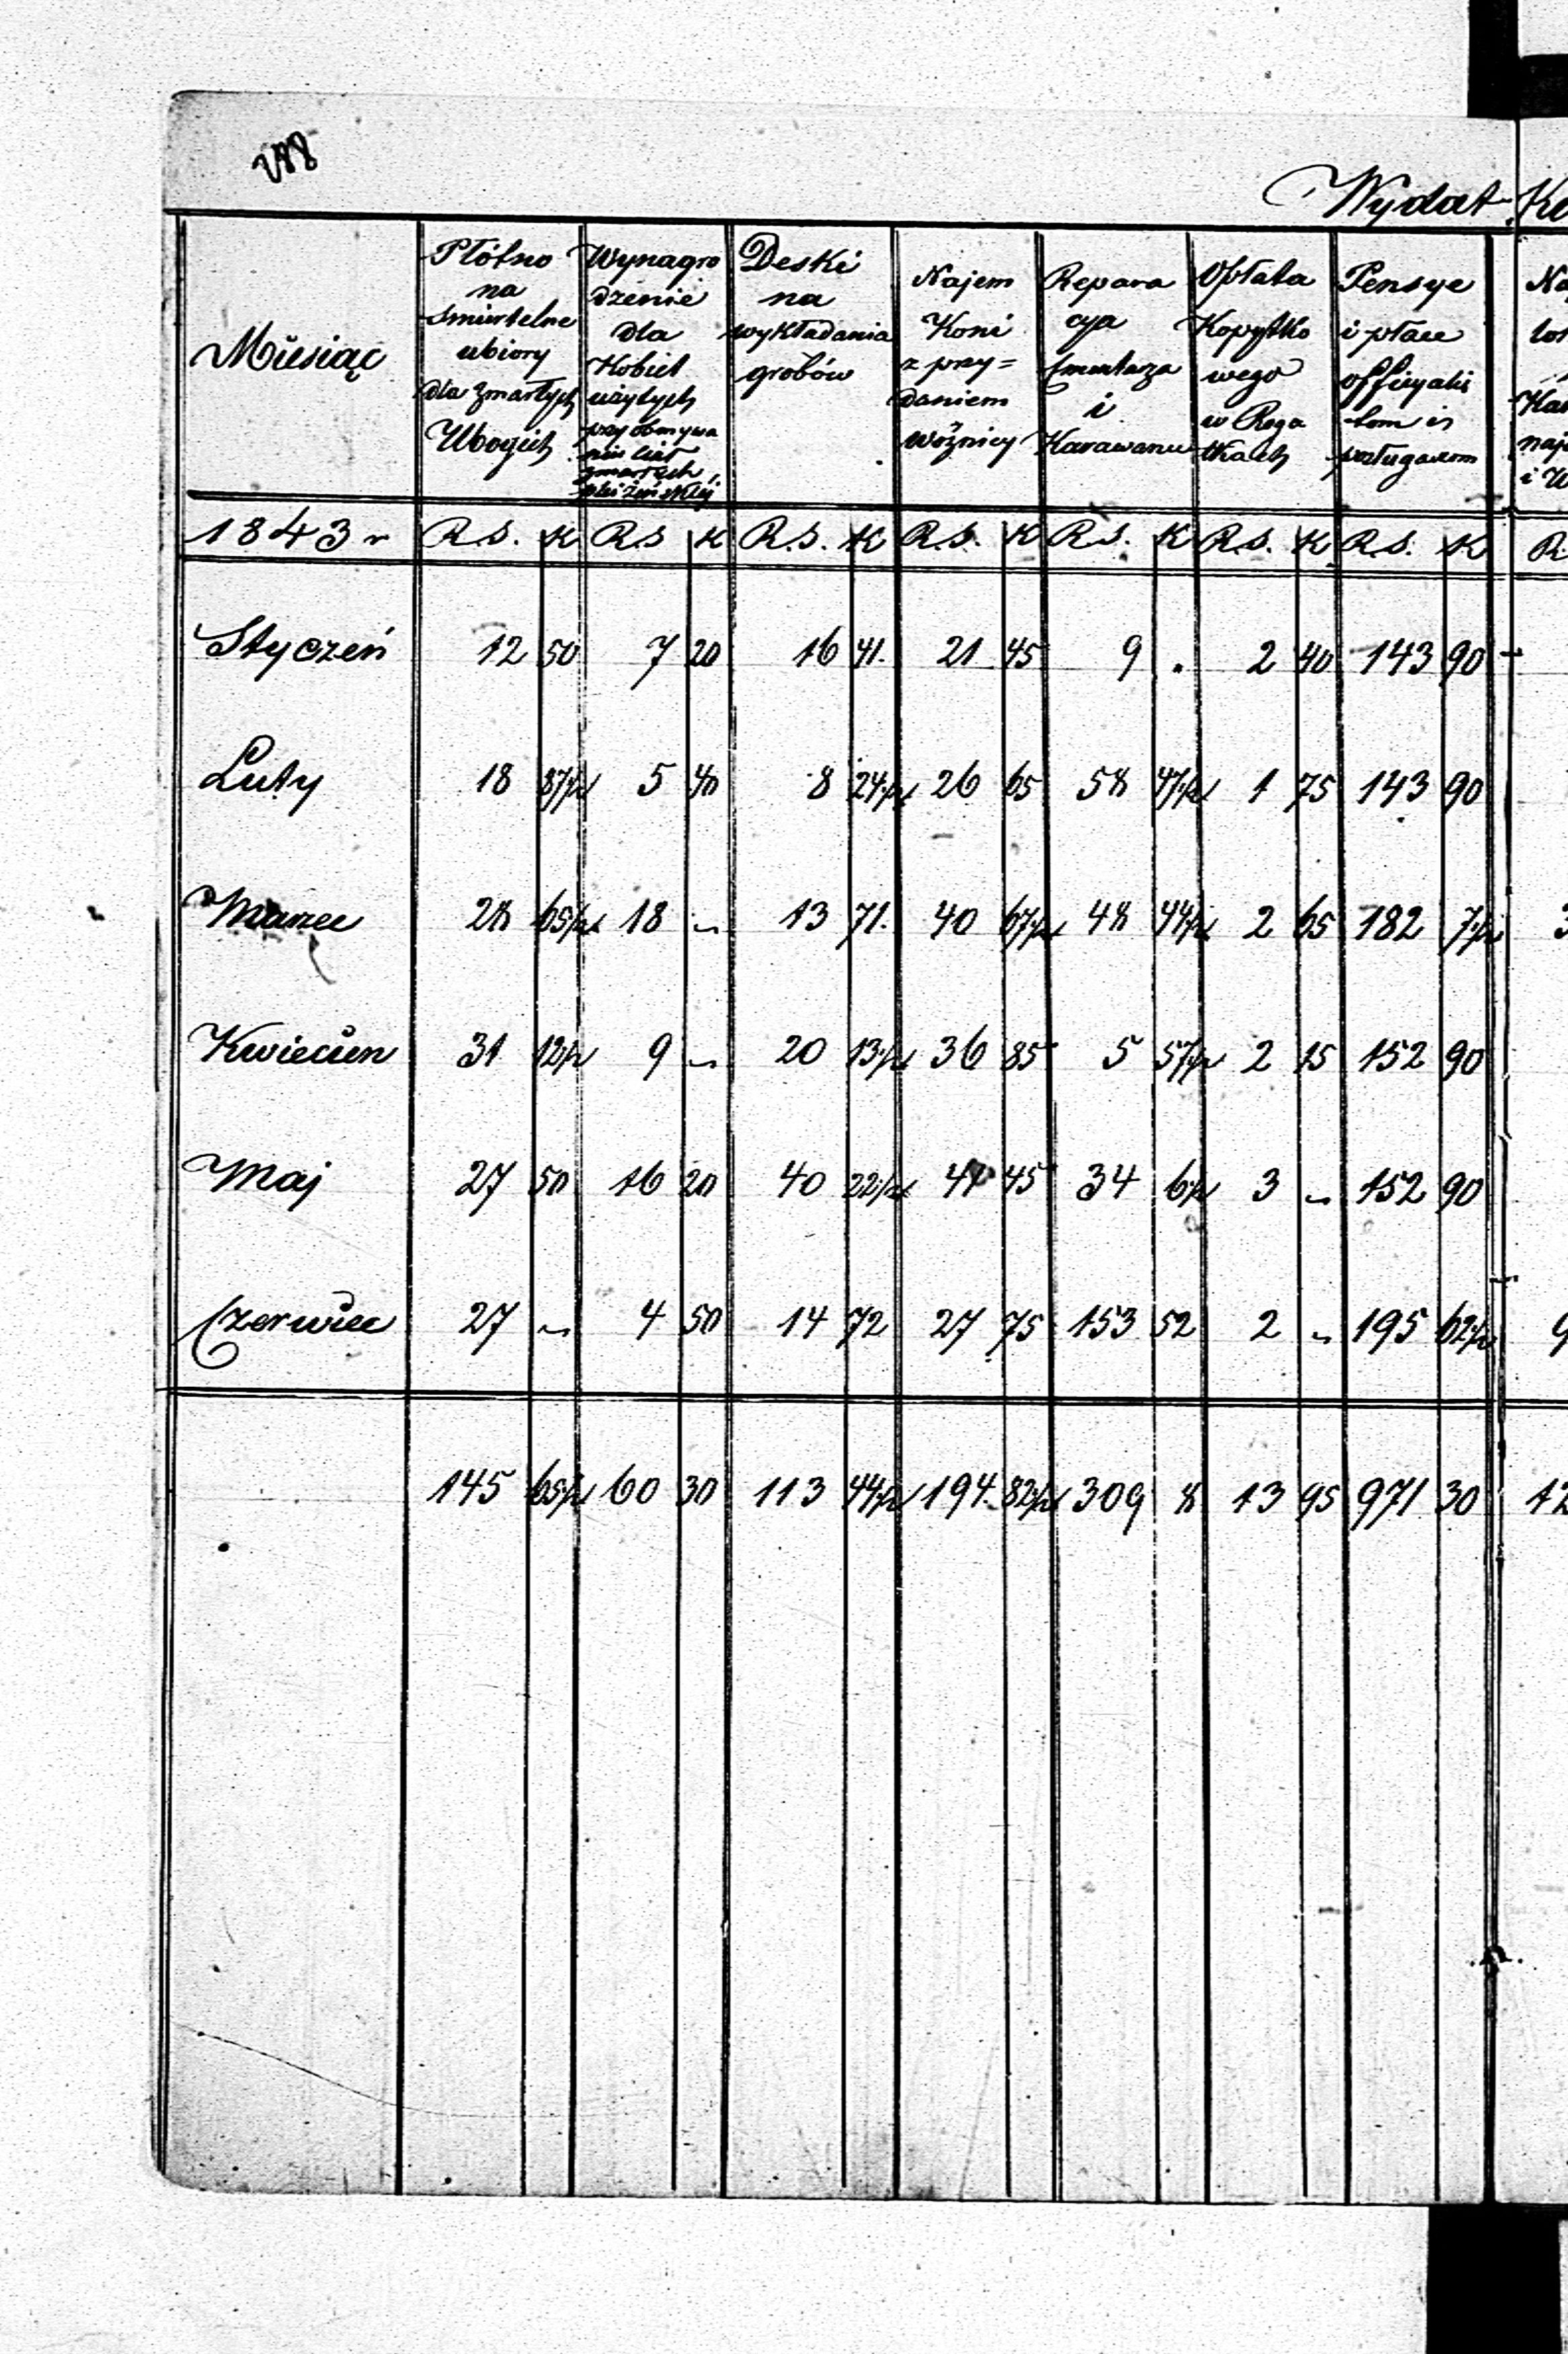 Wydat Ko
Miesiąc
Płótno na Smiertelne ubiory dla Zmarłych Ubogich
Wynagrodzenie dla Kobiet użytych przy obmywaniu ciał zmarłych płci żeńskiej
Deski na wykładania grobów
Najem Koni z przy= daniem woźnicy
Reparacya Smentarza i Karawanu
Opłata Kopytkowego w Rogatkach
Pensye i płace officyalistom
1843 r R.S. K R.S K R.S. K R.S. K R.S. K R.S. K R.S. K R
Styczeń 12 50 7 20 16 41. 21 45 9 . 2 40 143 90
Luty 18 87½ 5 40 8 24½ 26 65 58 47½ 1 75 143 90
Marzec 28 65½ 18 „ 13 71. 40 67½ 48 44½ 2 65 182 7½ 3
Kwiecien 31 12½ 9 „ 20 13½ 36 85 5 57½ 2 15 152 90
Maj 27 50 16 20 40 22½ 41 45 34 6½ 3 „ 152 90
Czerwiec 27 „ 4 50 14 72 27 75 153 52 2 „ 195 62½ 9
145 65½ 60 30 113 44½ 194 82½ 309 8 13 95 971 30 12